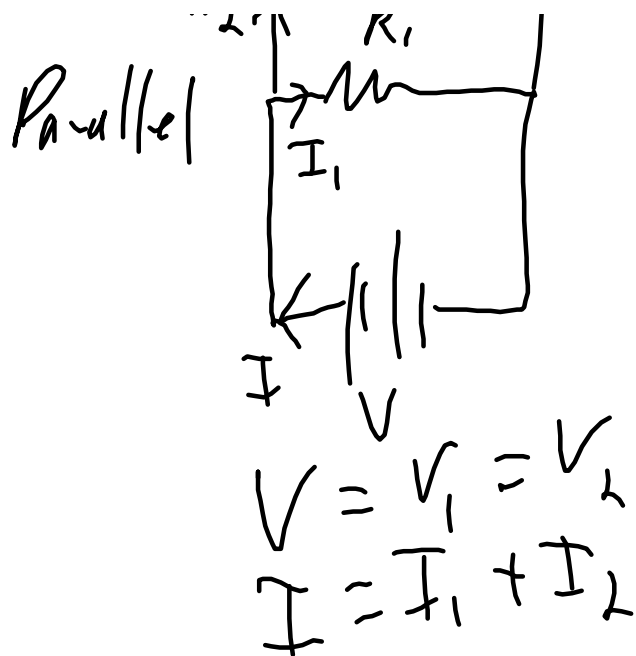 R₁
Parallel
I₁
I
V
V = V₁ = V₂
I = I₁ + I₂